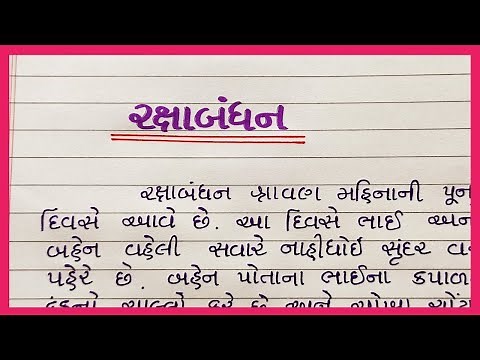 રક્ષાબંધન
રક્ષાબંધન શ્રાવણ મહિનાની પૂન
દિવસે આવે છે. આ દિવસે ભાઈ અન
બહેન વહેલી સવારે નાહીધોઇ સુંદર વ
પહેરે છે. બહેન પોતાના ભાઈના કપાળ
ચાલ્લો કરે છે અને